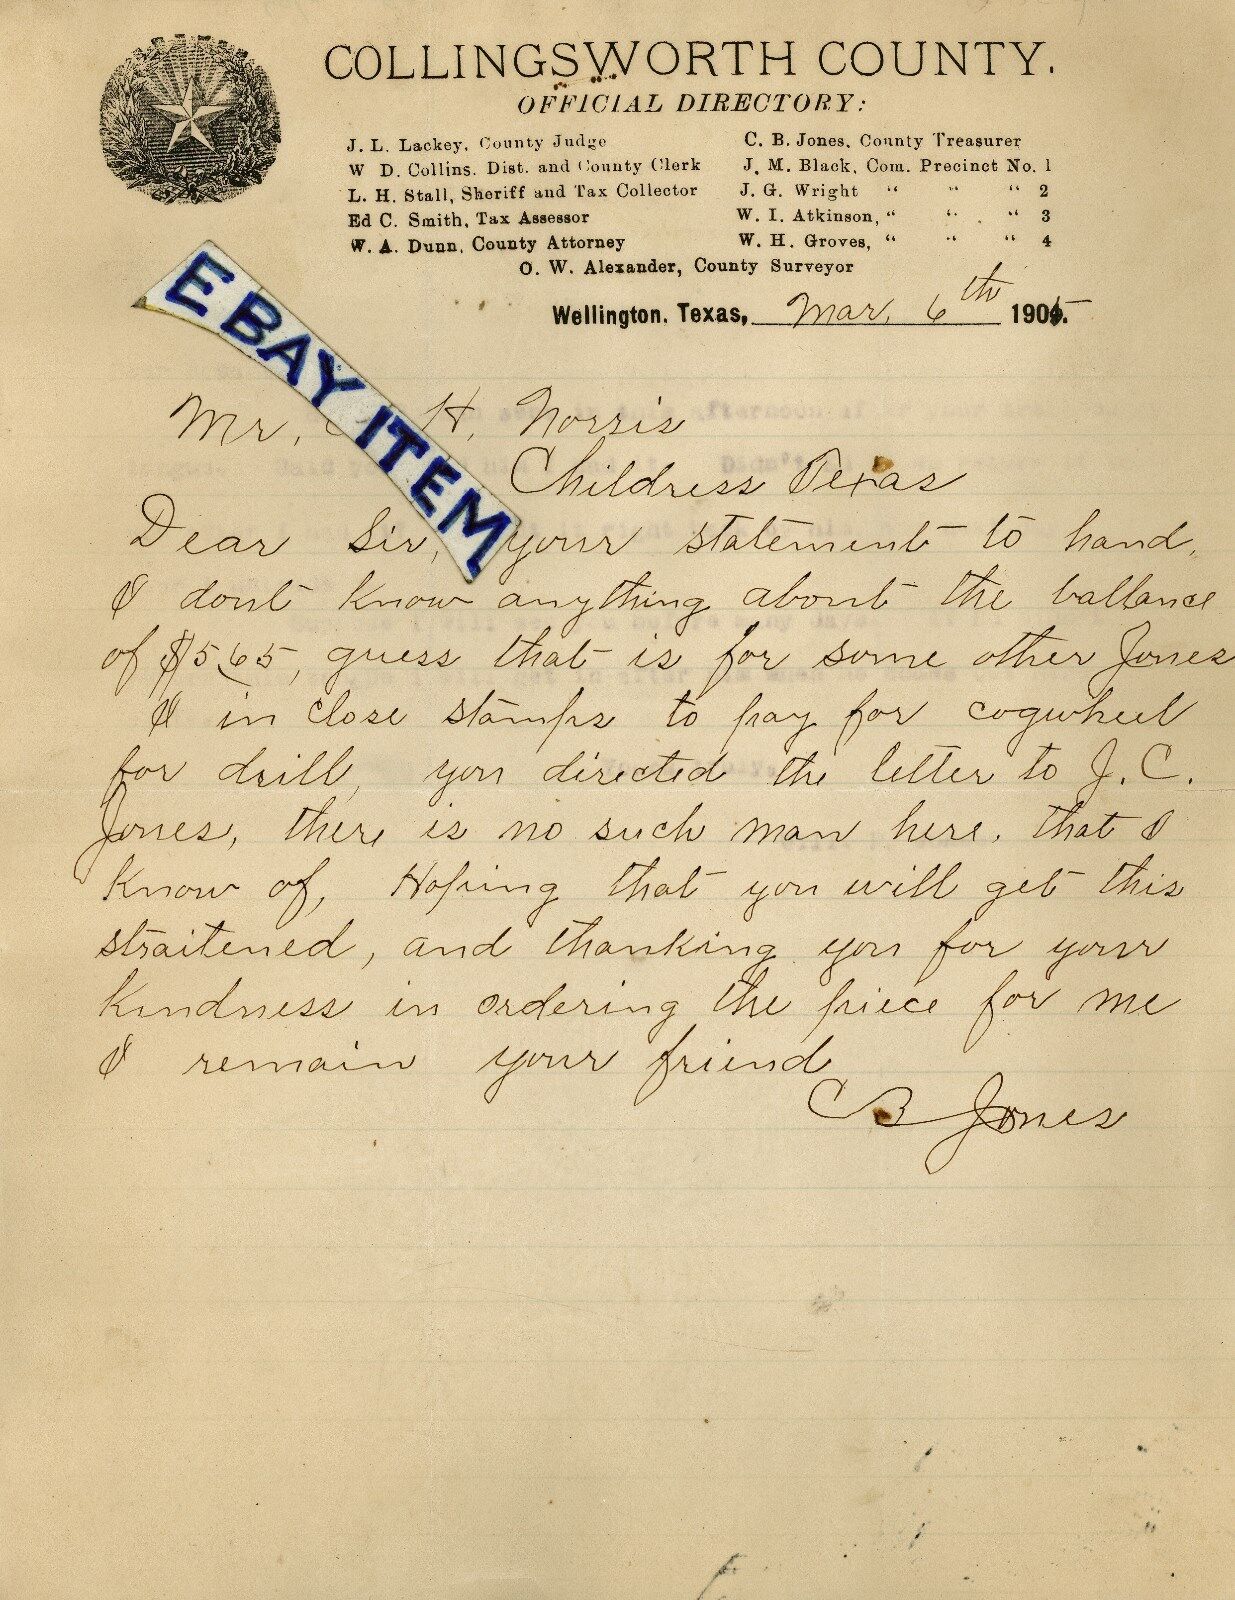 COLLINGSWORTH COUNTY.
OFFICIAL DIRECTORY:
J. L. Lackey, County Judge
W D. Collins. Dist. and County Clerk
L. H. Stall, Sheriff and Tax Collector
Ed C. Smith, Tax Assessor
W. A. Dunn, County Attorney
C. B. Jones, County Treasurer
J. M. Black, Com. Precinct No. 1
J. G. Wright “ “ “ 2
W. I. Atkinson, “ “ “ 3
W. H. Groves, “ “ “ 4
O. W. Alexander, County Surveyor
Wellington. Texas, Mar. 6th 1905.
EBAY ITEM
Mr. H. Norris
Childress Texas
Dear Sir, your statement to hand,
I dont know anything about the ballance
of $5.65, guess that is for some other Jones
I in close stamps to pay for cogwheel
for drill, you directed the letter to J. C.
Jones, there is no such man here. that I
know of, Hoping that you will get this
straitened, and thanking you for your
kindness in ordering the piece for me
I remain your friend
C B Jones